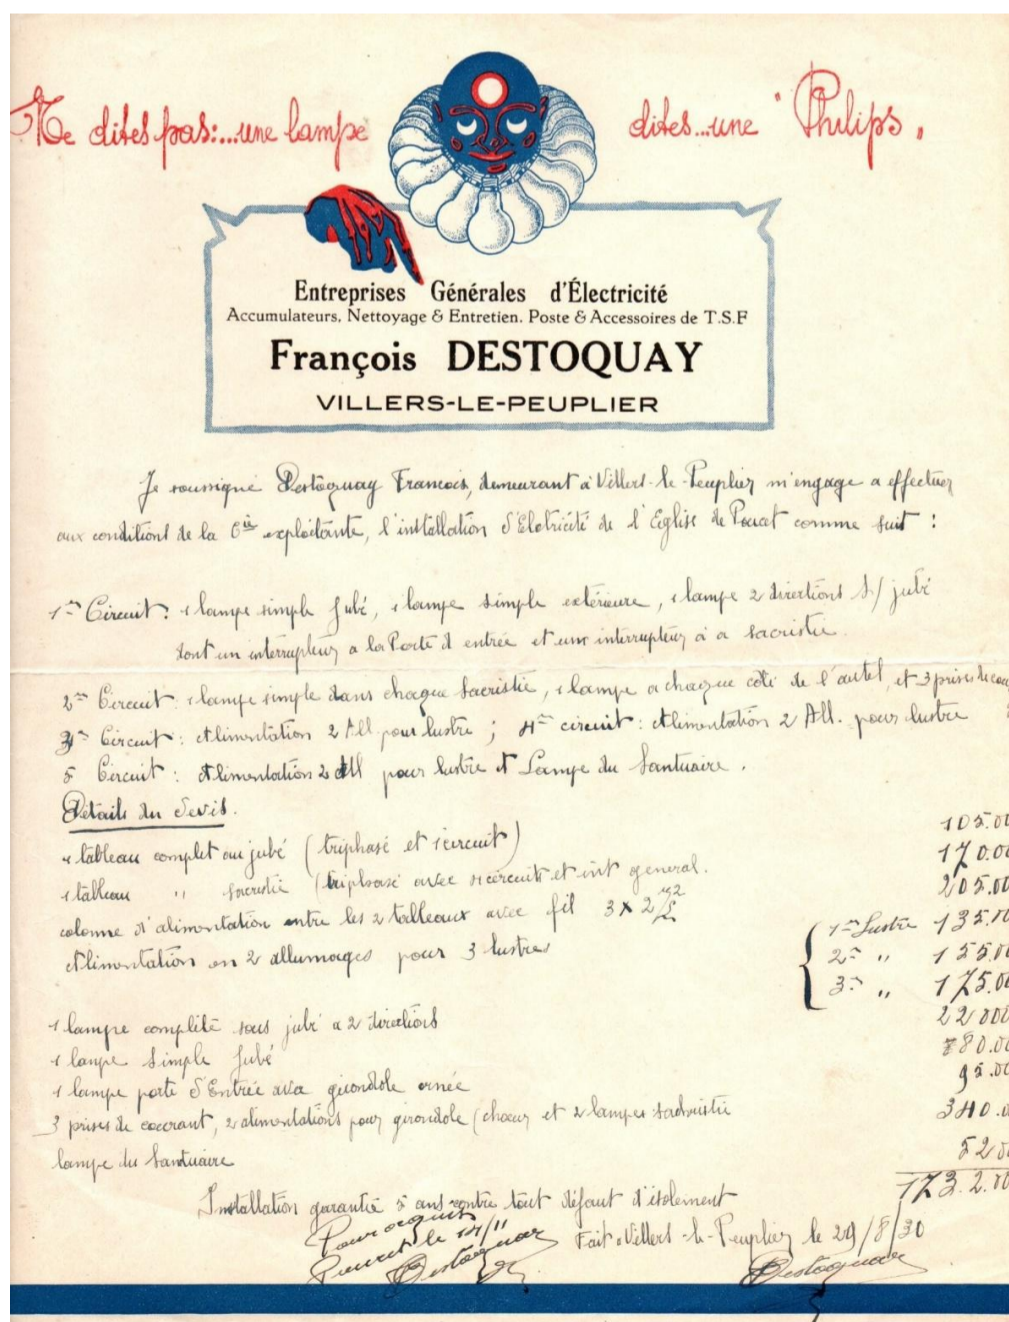 Ne dites pas:...une lampe dites...une "Philips"
Entreprises Générales d'Électricité
Accumulateurs, Nettoyage & Entretien. Poste & Accessoires de T.S.F
François DESTOQUAY
VILLERS-LE-PEUPLIER
Je soussigné Destoquay Francois, demeurant à Villers-le-Peuplier m'engage a effectuer
aux conditions de la Cie exploitante, l'intallation d'Eletricité de l'Eglise de Poucet comme suit :
1er Circuit : 1 lampe simple Jubé, 1 lampe simple extérieure, 1 lampe 2 directions s/ jubé
dont un interrupteur a la Porte d'entrée et un interrupteur à a sacristie.
2me Circuit : 1 lampe simple dans chaque sacristie, 1 lampe a chaque coté de l'autel, et 3 prises de cou
3me Circuit : Alimentation 2 All pour lustre ; 4me circuit : Alimentation 2 All. pour lustre
5 Circuit : Alimentation 2 All pour lustre et Lampe du Santuaire.
Détails du Devis.
1 tableau complet au jubé (triphasé et 1 circuit) 105.00
1 tableau " sacristie (triphasé avec circuits et int general. 170.00
colonne d'alimentation entre les 2 tableaux avec fil 3 x 2 205.00
Alimentation en 2 allumages pour 3 lustres { 1er Lustre 135.00
2e " 155.00
3e " 175.00
1 lampe complète sous jubé a 2 directions
1 lampe Simple Jubé 80.00
1 lampe porte d'Entrée avec girondole ornée 95.00
3 prises de courant, 2 alimentations pour girondole (chœur et 2 lampes sacristie 340.0
lampe du Santuaire 52.00
173.2.00
Installation garantie 5 ans contre tout défaut d'isolement
Pour acquit
Poucet le /11
Destoquay
Fait à Villers-le-Peuplier le 29/8/30
Destoquay